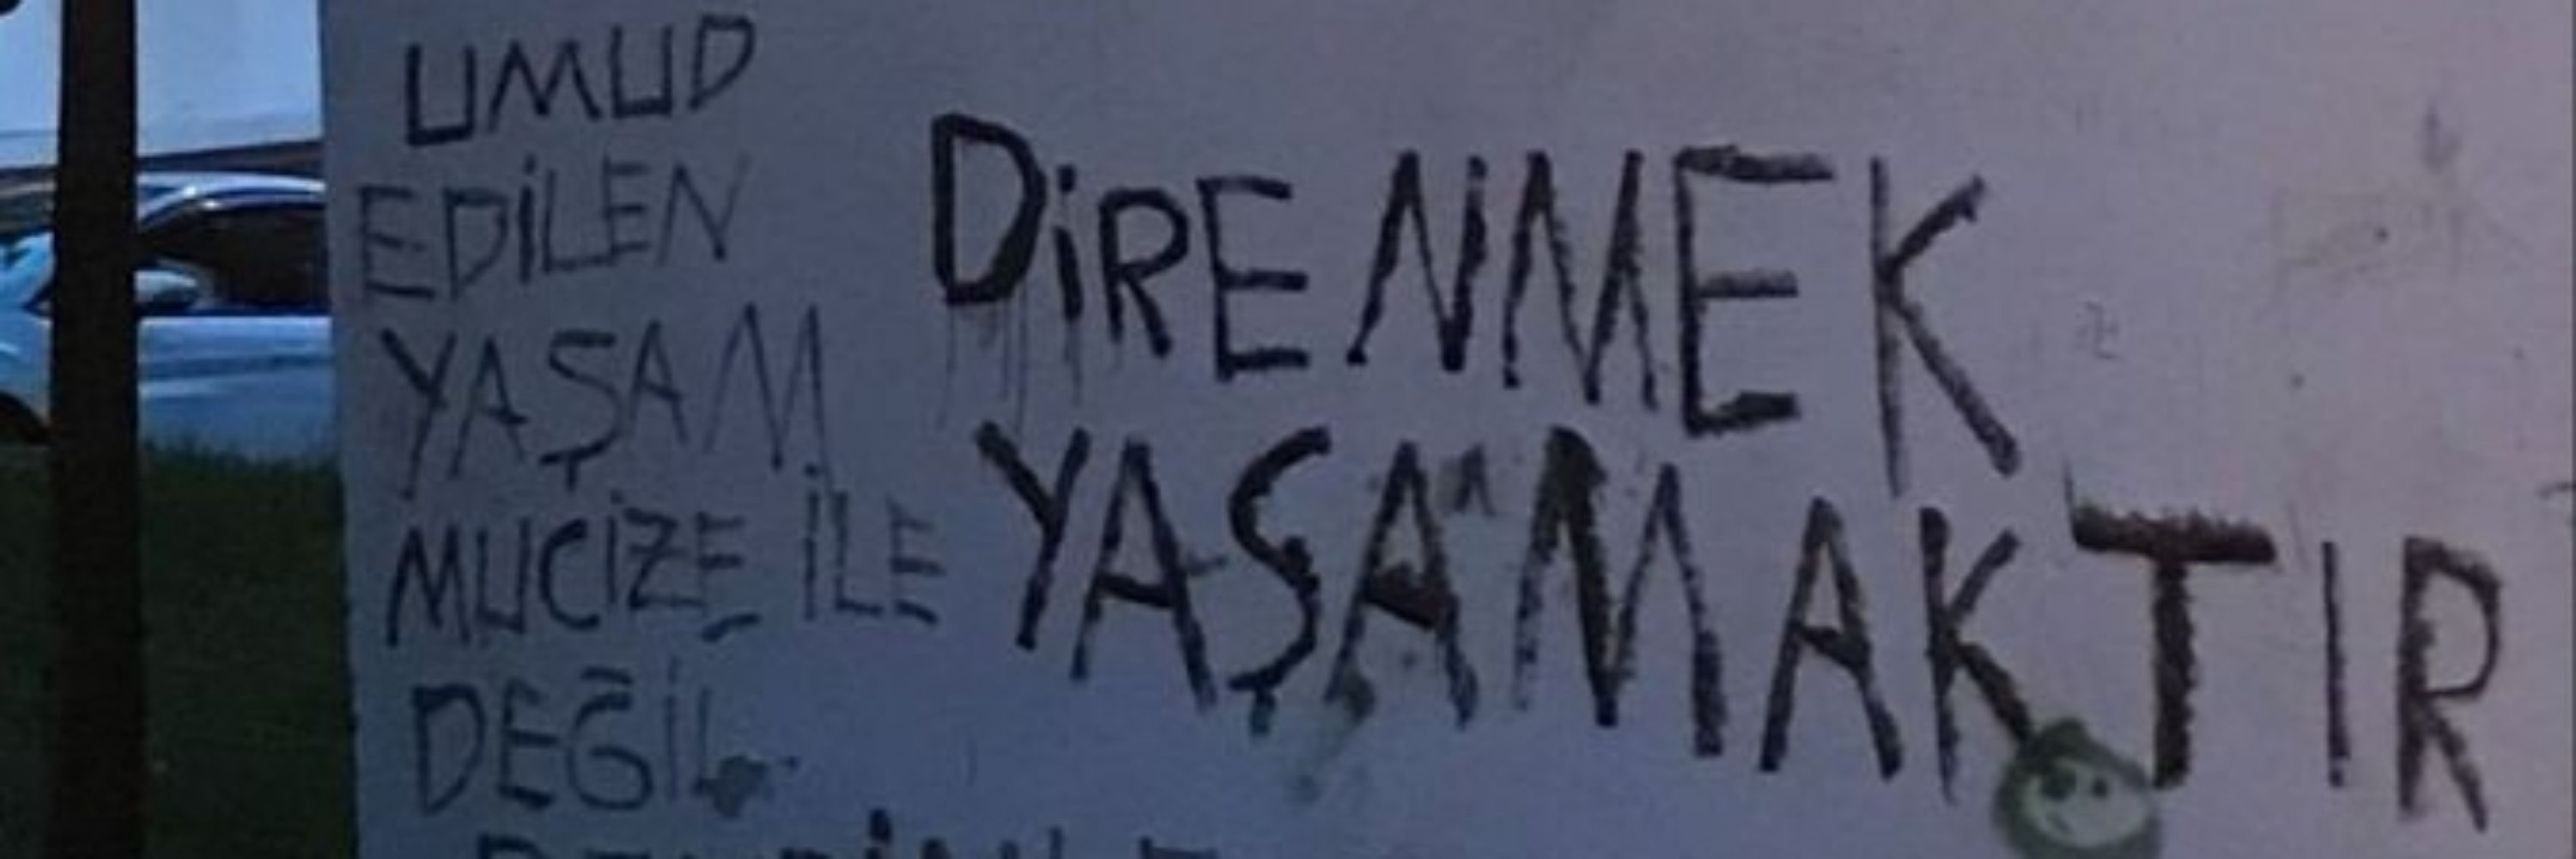 UMUD
EDİLEN
YAŞAM
MUCİZE İLE
DEĞİL
DİRENMEK
YAŞAMAKTIR